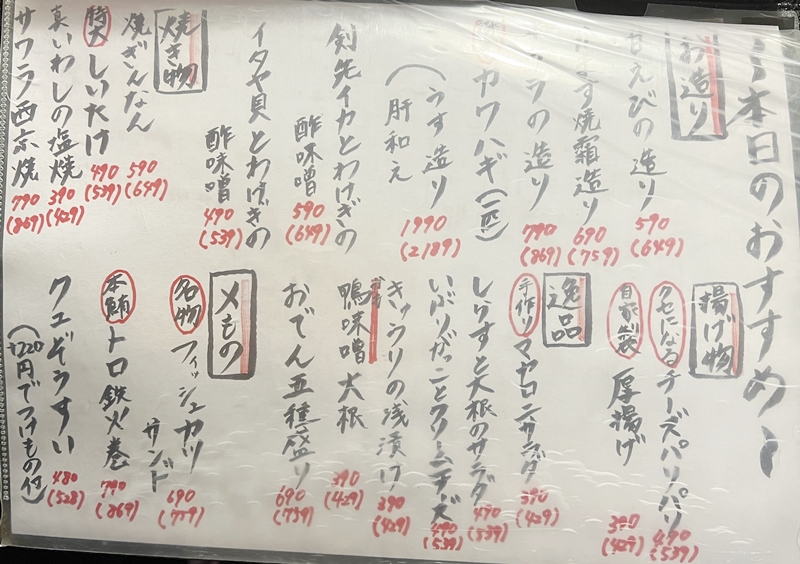 〜本日のおすすめ〜
お造り
甘えびの造り 590 (649)
ます焼霜造り 690 (759)
の造り 790 (869)
カワハギ(一匹)
(うす造り 1990 (2189)
肝和え
剣先イカとわけぎの
酢味噌 590 (649)
イタヤ貝とわけぎの
酢味噌 490 (539)
焼き物
焼ぎんなん 590 (649)
特大 しいたけ 490 (539)
真いわしの塩焼 390 (429)
サワラ西京焼 790 (869)
揚げ物
クセになる チーズパリパリ 490 (539)
自家製 厚揚げ 390 (429)
逸品
手作り マカロニサラダ 390 (429)
しらすと大根のサラダ 490 (539)
いぶりがっことクリームチーズ 490 (539)
きゅうりの浅漬け 390 (429)
鴨味噌大根 390 (429)
おでん五種盛り 690 (759)
〆もの
名物 フィッシュカツ
サンド 690 (759)
本鮪 トロ鉄火巻 790 (869)
クエぞうすい 480 (528)
(+220円でつけもの付)